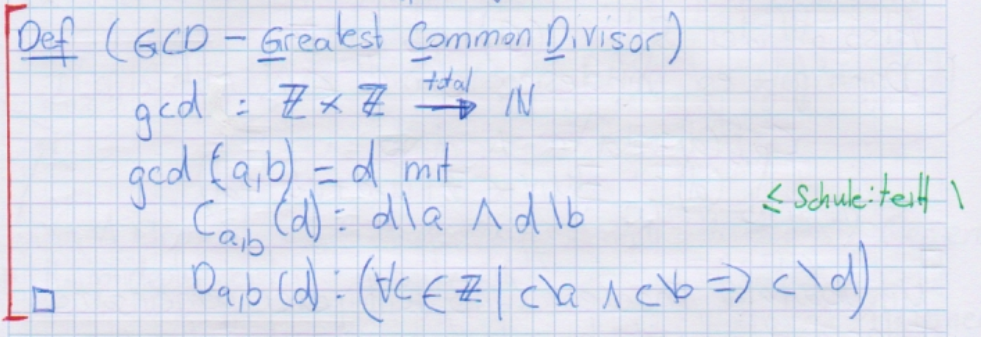 Def (GCD - Greatest Common Divisor)
gcd : ℤ × ℤ →(total) ℕ
gcd (a,b) = d mit
C_{a,b} (d) : d\a ∧ d\b
≤ Schule: teilt \
D_{a,b} (d) : (∀c ∈ ℤ | c\a ∧ c\b ⇒ c\d)